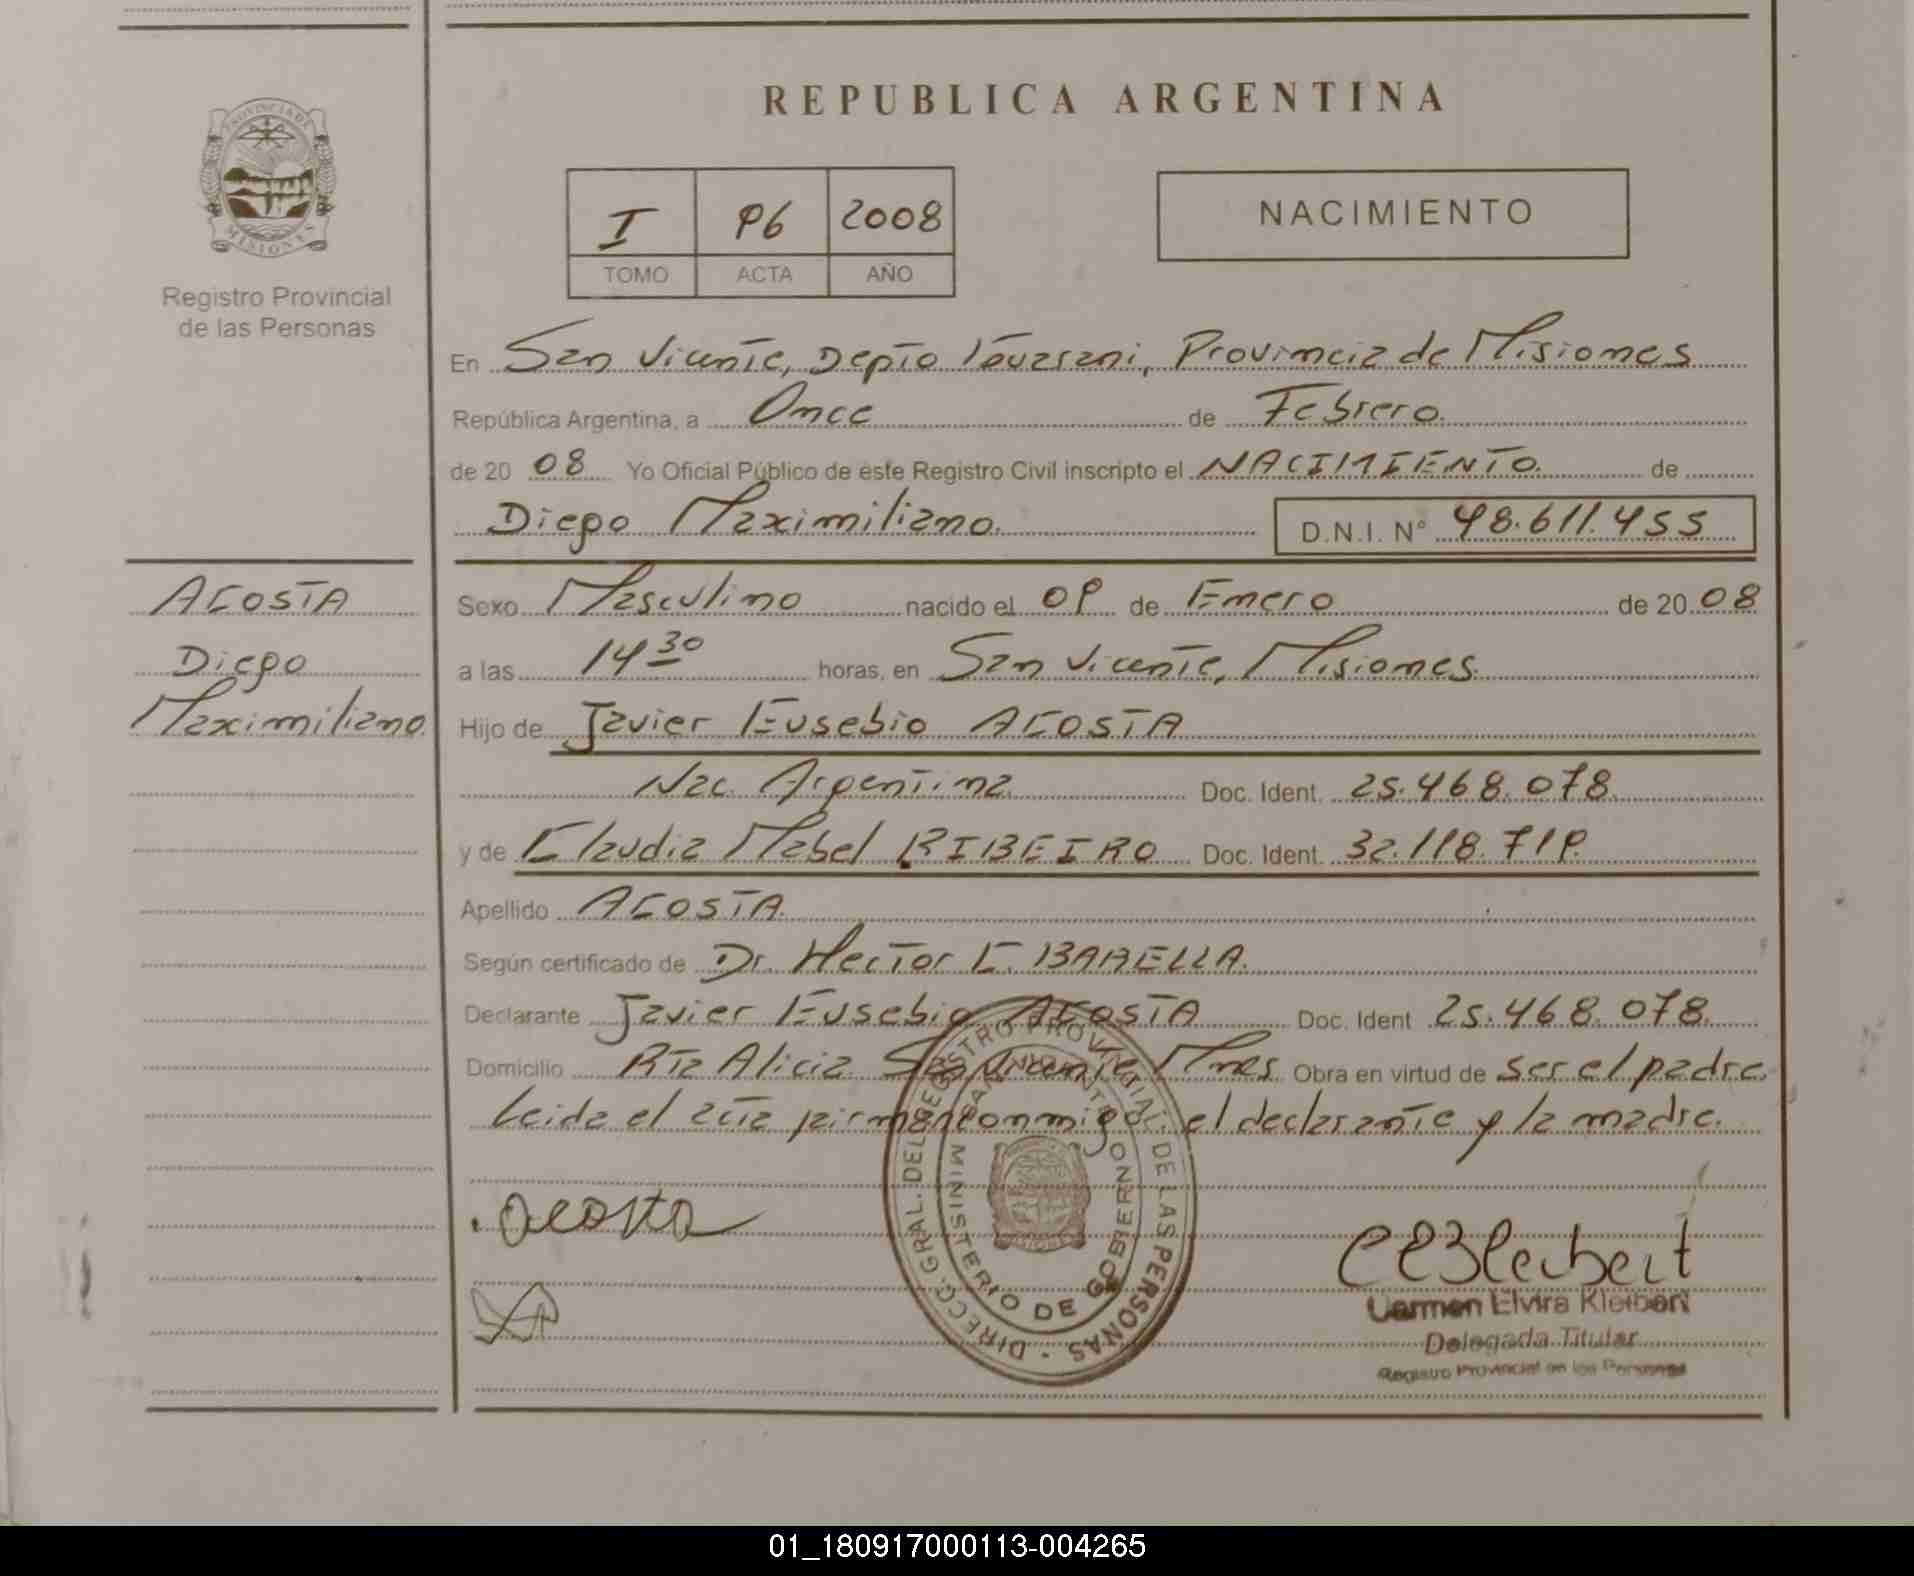 REPUBLICA ARGENTINA
PROVINCIA DE
MISIONES
Registro Provincial
de las Personas
I 96 2008
TOMO ACTA AÑO
NACIMIENTO
En San Vicente, Depto Guarani, Provincia de Misiones
República Argentina, a Once de Febrero.
de 20 08 Yo Oficial Público de este Registro Civil inscripto el NACIMIENTO. de
Diego Maximiliano. D.N.I. Nº 48.611.455
ACOSTA
Diego
Maximiliano
Sexo Masculino nacido el 09 de Enero de 20 08
a las 14 30 horas, en San Vicente, Misiones.
Hijo de Javier Eusebio ACOSTA
Nac. Argentina Doc. Ident. 25.468.078.
y de Claudia Mabel RIBEIRO Doc. Ident. 32.118.719.
Apellido ACOSTA.
Según certificado de Dr. Hector C. BARELLA.
Declarante Javier Eusebio ACOSTA Doc. Ident 25.468.078.
Domicilio Rta Alicia San Vicente Mnes Obra en virtud de ser el padre.
Leida el acta firman conmigo: el declarante y la madre.
DIRECC. GRAL. DEL REGISTRO PROVINCIAL DE LAS PERSONAS
MINISTERIO DE GOBIERNO
acosta
Carmen Elvira Kleibert
Delegada Titular
Registro Provincial de las Personas
01_180917000113-004265